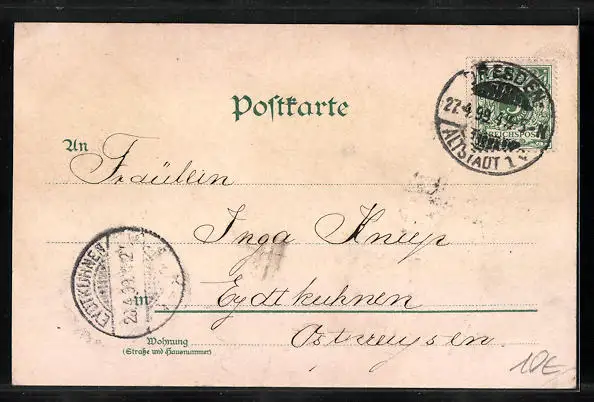 Postkarte
DRESDEN
27.4.99
ALTSTADT 1
REICHSPOST
An
Fräulein
Inga Kniep
EYDTKUHNEN
in
Eydtkuhnen
Ostpreussen
Wohnung
(Straße und Hausnummer)
10€